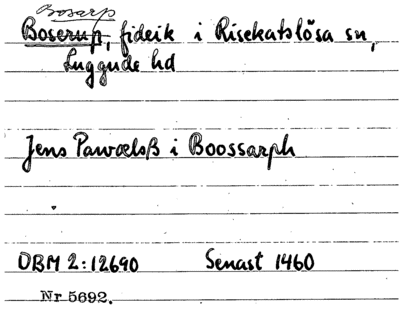 Bosarp
Boserup, fideik i Risekatslösa sn,
Luggude hd
Jens Pawælsß i Boossarph
DBM 2:12690 Senast 1460
Nr 5692.